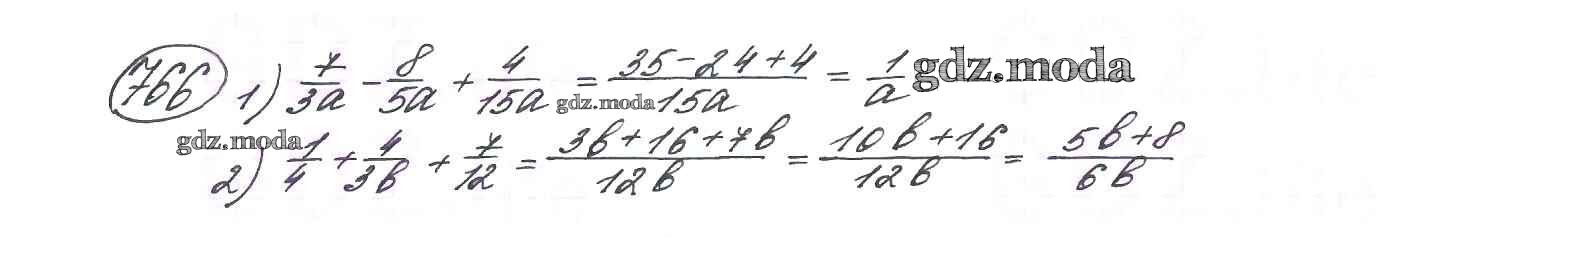 766 1) 7/3a - 8/5a + 4/15a = (35 - 24 + 4)/15a = 1/a gdz.moda
gdz.moda
gdz.moda
2) 1/4 + 4/3b + 7/12 = (3b + 16 + 7b)/12b = (10b + 16)/12b = (5b + 8)/6b